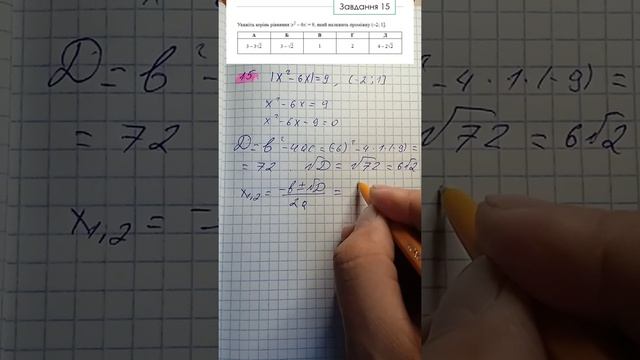 Завдання 15
Укажіть корінь рівняння |x² – 6x| = 9, який належить проміжку (–2; 1].
А Б В Г Д
3 – 3√2 3 – √2 1 2 4 – 2√2
15 |x² - 6x| = 9, (-2; 1]
x² - 6x = 9
x² - 6x - 9 = 0
D = b² - 4ac = (-6)² - 4 · 1 · (-9) =
= 72 √D = √72 = 6√2
x₁,₂ = -b ± √D / 2a =